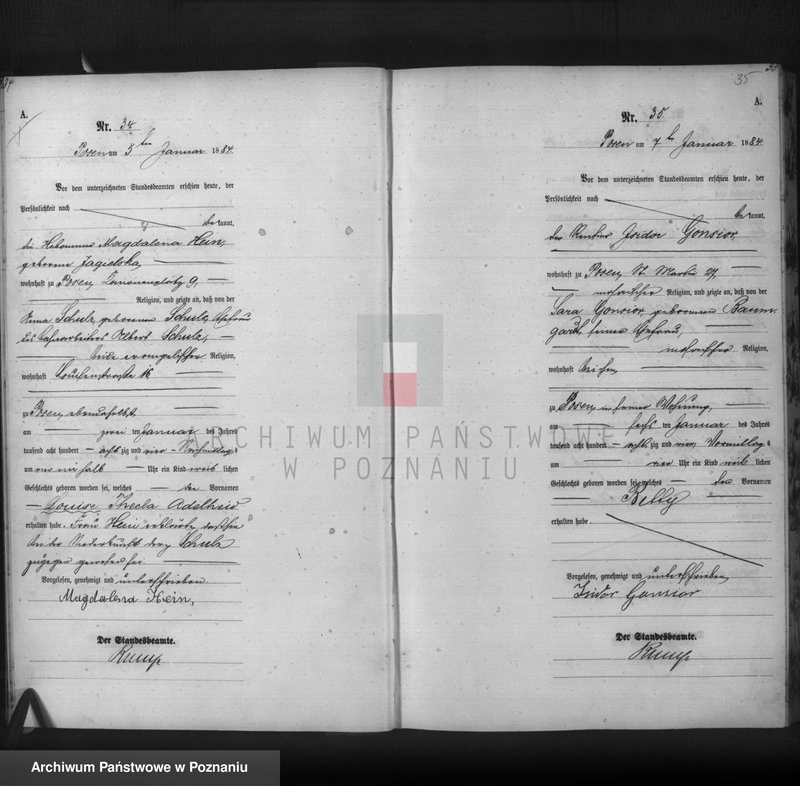 A.
Nr. 34.
Posen am 5ten Januar 1884.
Vor dem unterzeichneten Standesbeamten erschien heute, der
Persönlichkeit nach
bekannt,
die Hebamme Magdalena Hein,
geborene Jagielska,
wohnhaft zu Posen 9,
Religion, und zeigte an, daß von der
Anna Schulz geborenen Schulz, Ehefrau
des Schulz,
beide evangelischer Religion,
wohnhaft
zu Posen ebendaselbst
am zwei ten Januar des Jahres
tausend acht hundert acht zig und vier Nachmittags
um ein halb Uhr ein Kind weib lichen
Geschlechts geboren worden sei, welches den Vornamen
Louise Thecla Adelheid
erhalten habe. Frau Hein erklärte, daß sie
bei der Niederkunft der Schulz
zugegen gewesen sei.
Vorgelesen, genehmigt und unterschrieben
Magdalena Hein,
Der Standesbeamte.
35
A.
Nr. 35.
Posen am 7ten Januar 1884.
Vor dem unterzeichneten Standesbeamten erschien heute, der
Persönlichkeit nach
bekannt,
der Isidor Gonsior,
wohnhaft zu Posen St. Martin 27,
mosaischer Religion, und zeigte an, daß von der
Sara Gonsior, geborenen Baum-
gart, seiner Ehefrau,
mosaischer Religion,
wohnhaft bei ihm,
zu Posen, in seiner Wohnung,
am sechs ten Januar des Jahres
tausend acht hundert acht zig und vier Vormittags
um vier Uhr ein Kind weib lichen
Geschlechts geboren worden sei, welches den Vornamen
Betty
erhalten habe.
Vorgelesen, genehmigt und unterschrieben,
Isidor Gonsior
Der Standesbeamte.
ARCHIWUM PAŃSTWOWE
W POZNANIU
Archiwum Państwowe w Poznaniu